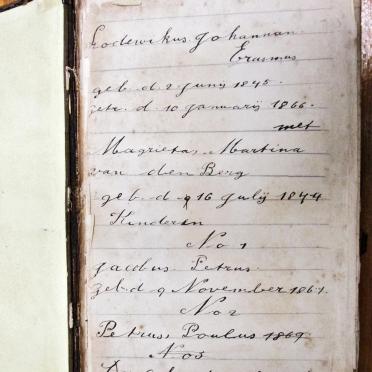 Lodewikus Johannan
Erasmus
geb. d. 2 Junij 1845.
getr. d. 10 Januarij 1866.
met
Magrieta, Martina
van den Berg
geb. d. 16 Julij 1844
Kinderen
No 1
Jacobus Petrus.
geb. d 9 November 1867.
No 2
Petrus, Paulus 1869
No 3